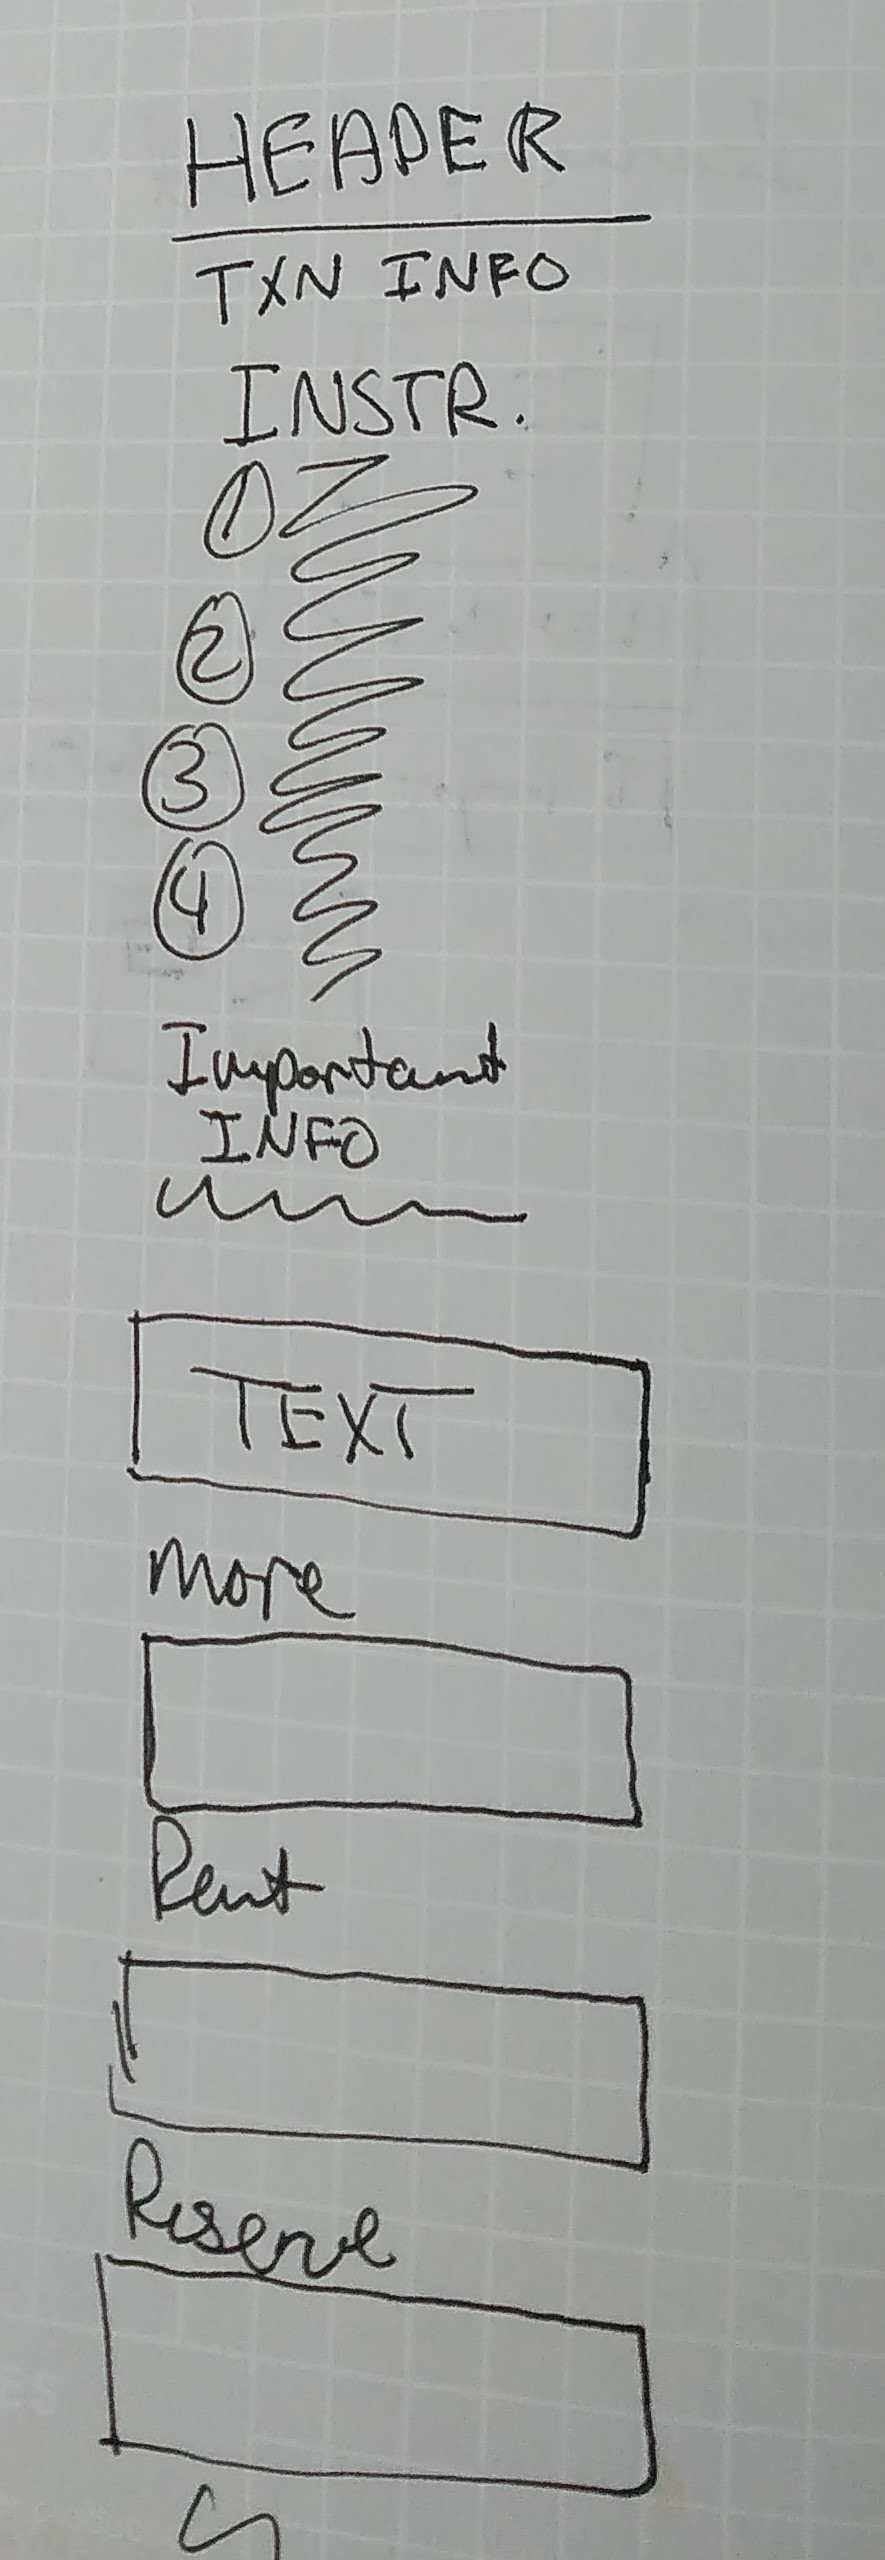 HEADER
TXN INFO
INSTR.
1
2
3
4
Important
INFO
TEXT
More
Rent
Reserve